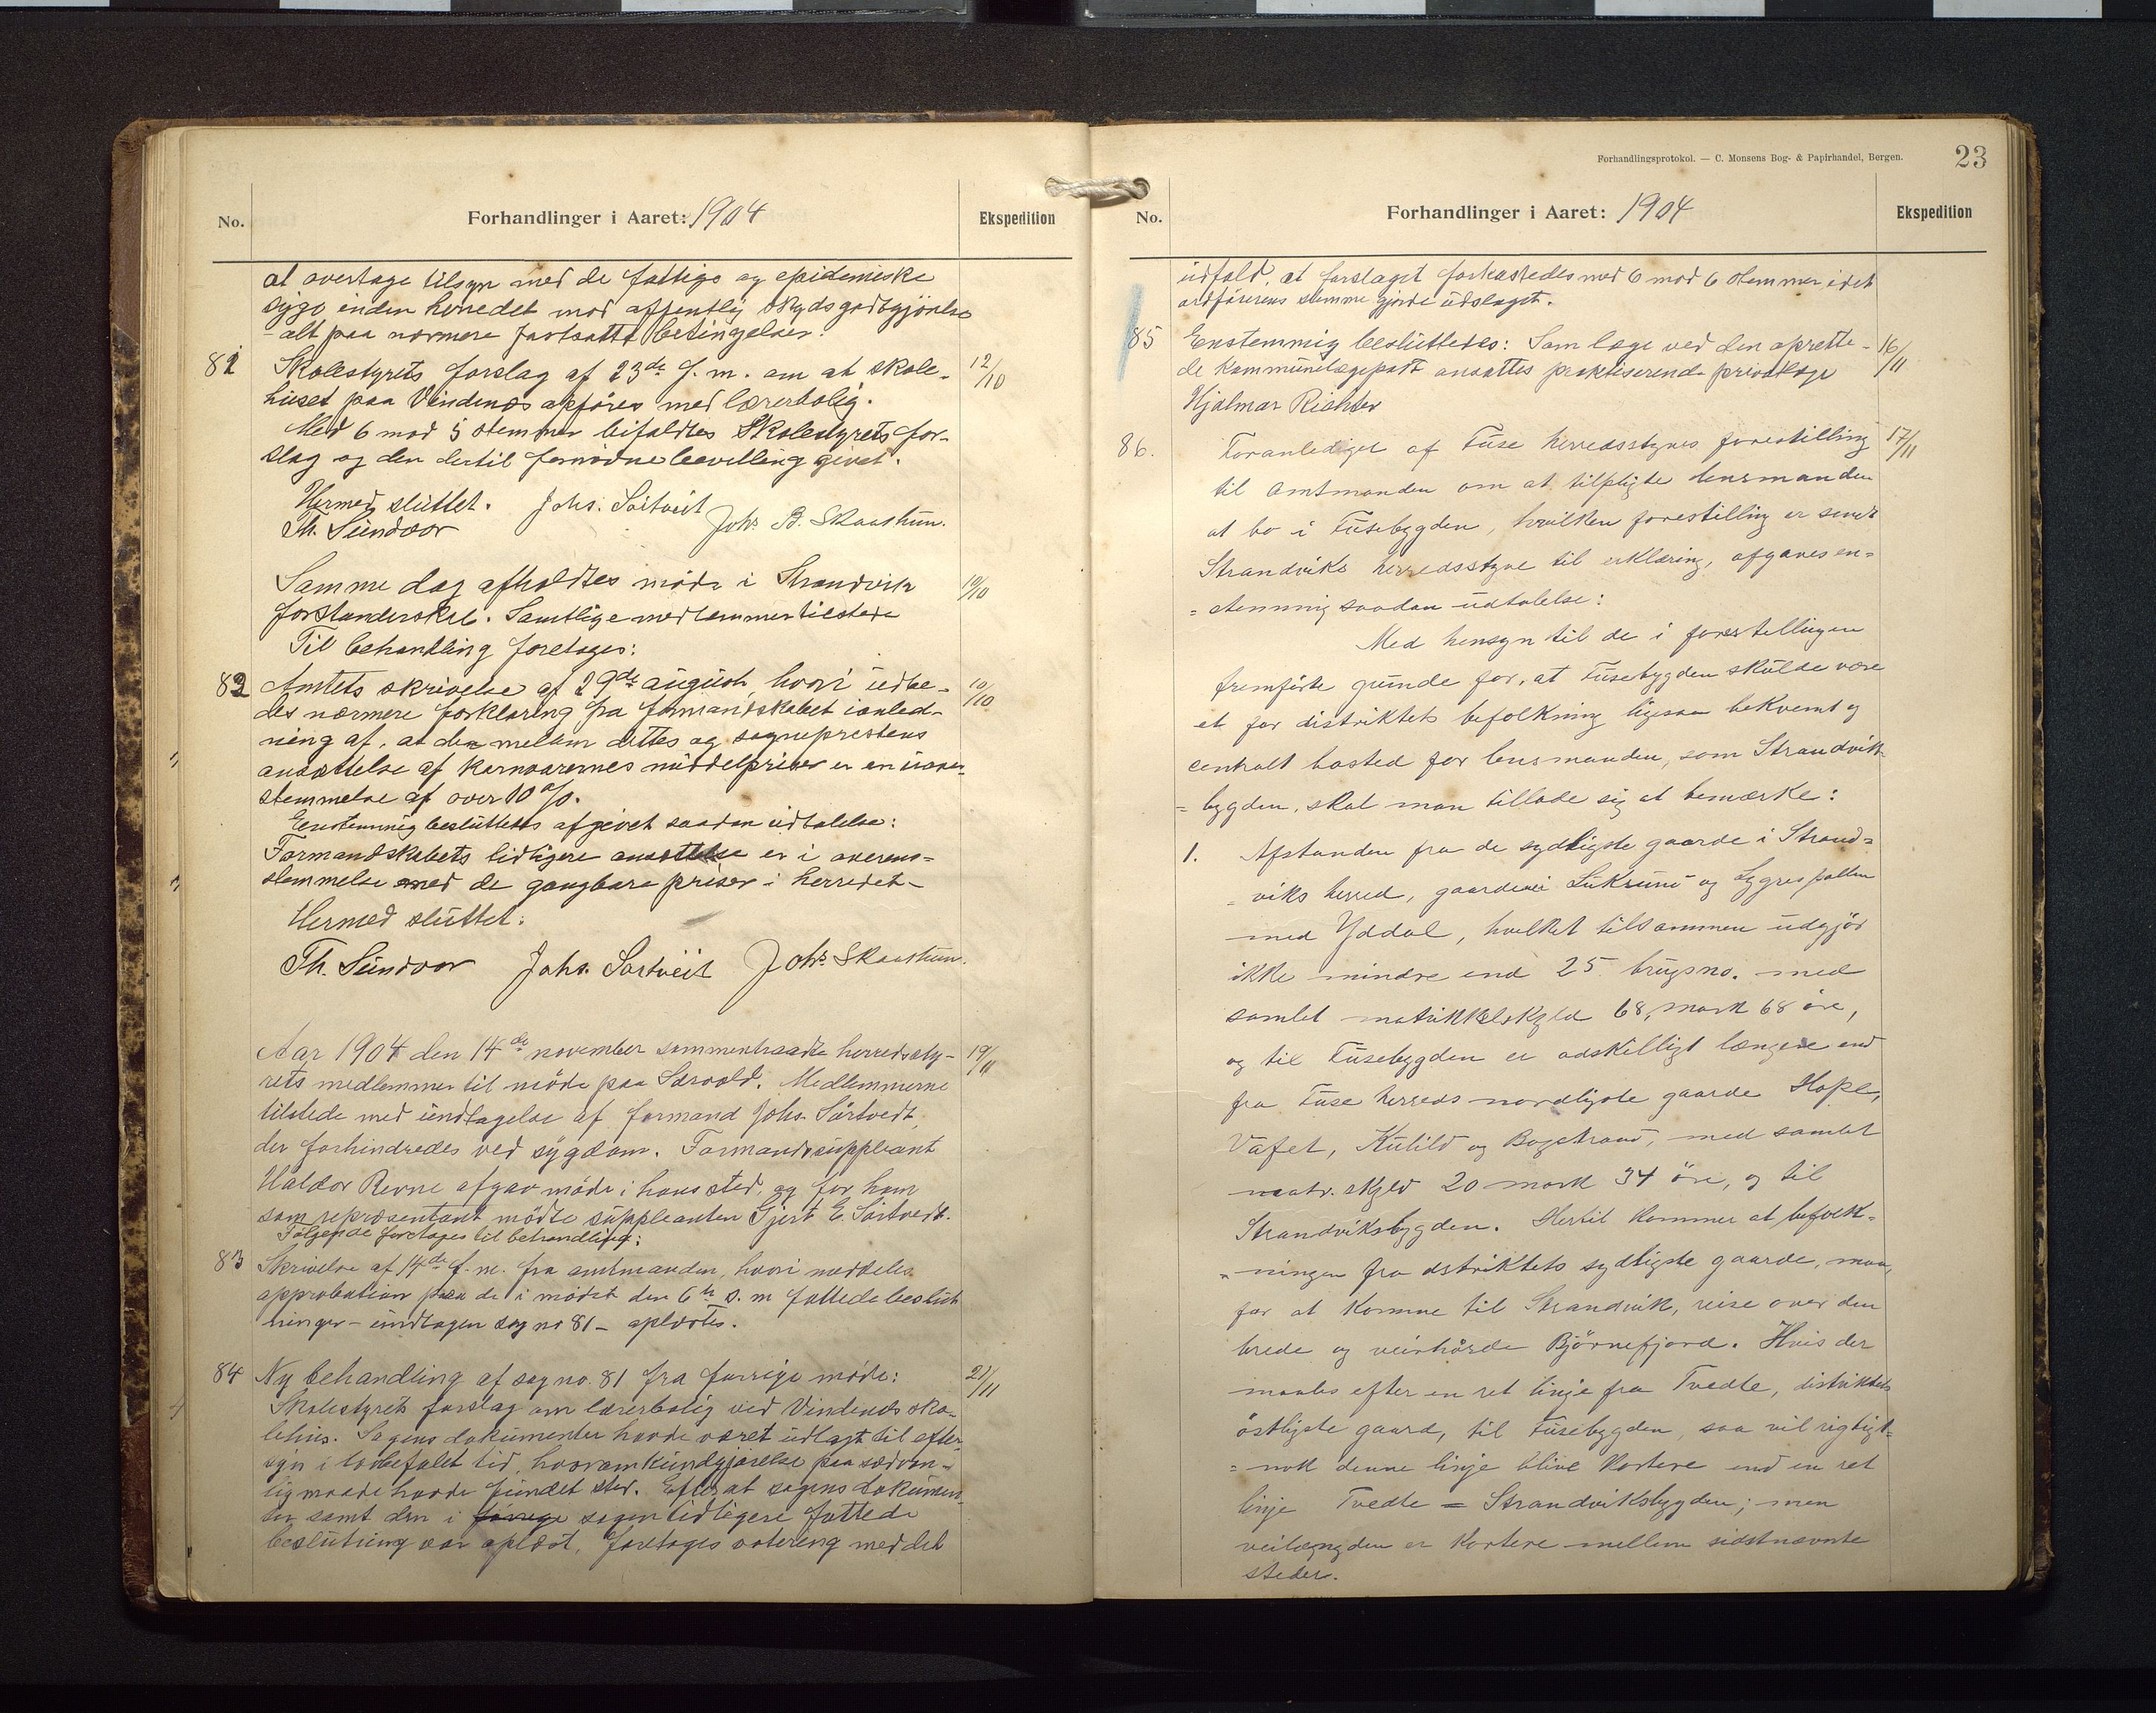 No.
Forhandlinger i Aaret: 1904
Ekspedition
at overtage tilsyn med de fattige og epidemiske
syge inden herredet mod offentlig skydsgodtgjörelse
- alt paa nærmere fastsatte betingelser.
81 Skolestyrets forslag af 23de f. m. om at skole- 12/10
huset paa Vindenes opföres med lærerbolig.
Med 6 mod 5 stemmer bifaldtes Skolestyrets for-
slag og den dertil fornödne bevilling givet.
Hermed sluttet. Johs. Sörtveit
Th. Sundvor Johs B. Skaathun.
Samme dag afholdtes möde i Strandvik 10/10
forstanderskab. Samtlige medlemmer tilstede
Til behandling foretages:
82 Amtets skrivelse af 29de august, hvori udbe- 10/10
des nærmere forklaring fra formandskabet i anled-
ning af, at der mellem dettes og sogneprestens
ansættelse af kornvarernes middelpriser er en uover-
stemmelse af over 10 %.
Eenstemmig besluttedes afgivet saadan udtalelse:
Formandskabets tidligere ansættelse er i overens-
stemmelse med de gangbare priser i herredet-
Hermed sluttet:
Th. Sundvor Johs. Sörtveit Johs Skaathun.
Aar 1904 den 14de november sammentraadte herredssty- 19/11
rets medlemmer til möde paa Sævold. Medlemmerne
tilstede med undtagelse af formand Johs. Sörtvedt,
der forhindredes ved sygdom. Formandssuppleant
Haldor Revne afgav möde i hans sted, og for ham
som repræsentant mödte suppleanten Gjert E. Sörtvedt.
Fölgende foretages til behandling:
83 Skrivelse af 14de f. m. fra amtmanden, hvori meddeles
approbation paa de i mödet den 6te s. m fattede beslut
ninger - undtagen sag no 81 - oplæstes.
84 Ny behandling af sag no. 81 fra forrige möde: 21/11
Skolestyrets forslag om lærerbolig ved Vindenes sko-
lehus. Sagens dokumenter havde været udlagt til efter-
syn i lovbefalet tid, hvorom kundgjörelse paa sædvan-
lig maade havde fundet sted. Efterat sagens dokumen-
ter samt den i forrige sagen tidligere fattede
beslutning var oplæst, foretages votering med det
Forhandlingsprotokol. — C. Monsens Bog- & Papirhandel, Bergen.
23
No.
Forhandlinger i Aaret: 1904
Ekspedition
udfald, at forslaget forkastedes med 6 mod 6 stemmer, idet
ordförerens stemme gjorde udslaget.
85 Enstemmig besluttedes: Som læge ved den oprette- 16/11
de kommunelægepost ansattes praktiserende privatlæge
Hjalmar Richter
86. Foranlediget af Fuse herredsstyres forestilling 17/11
til Amtmanden om at tilpligte lensmanden
at bo i Fusebygden, hvilken forestilling er sendt
Strandviks herredsstyre til erklæring, afgaves en=
=stemmig saadan udtalelse:
Med hensyn til de i forestillingen
fremförte grunde for, at Fusebygden skulde være
et for distriktets befolkning ligesaa bekvemt og
centralt bosted for lensmanden, som Strandvik-
= bygden, skal man tillade sig at bemærke:
1. Afstanden fra de sydligste gaarde i Strand=
= viks herred, gaardene Lukksund og Lygrespollen
med Yddal, hvilket tilsammen udgjör
ikke mindre end 25 brugsno. med
samlet matrikkelskyld 68, mark 68 öre,
og til Fusebygden er adskilligt længere end
fra Fuse herreds nordligste gaarde Hope,
Vafet, Kulild og Bogstrand, med samlet
matr. skyld 20 mark 34 öre, og til
Strandviksbygden. Hertil kommer at befolk=
= ningen fra dstriktets sydligste gaarde, maa,
for at komme til Strandvik, reise over den
brede og veirhårde Björnefjord. Hvis der
maales efter en ret linje fra Tvedte, distriktets
östligste gaard, til Fusebygden, saa vil rigtigt=
= nok denne linje blive kortere end en ret
linje Tvedte = Strandviksbygden; men
veilængden er kortere mellem sidstnævnte
steder.